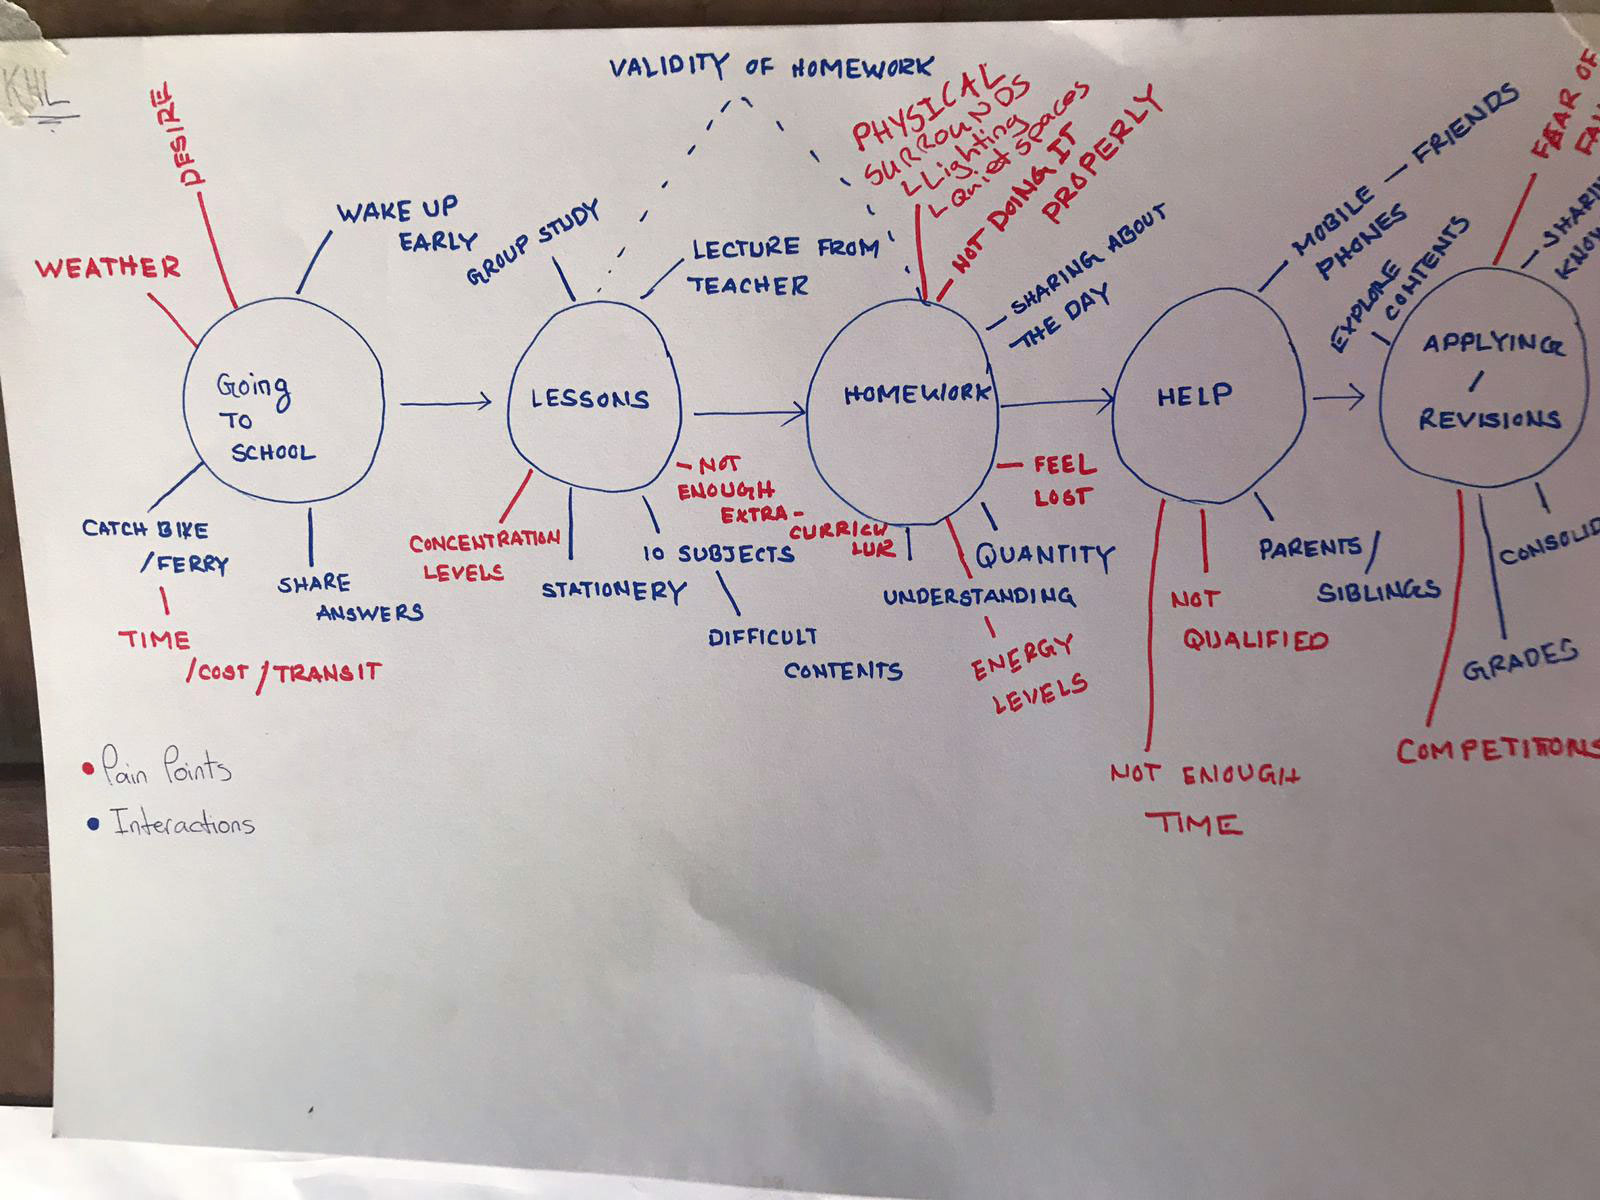 KHL
VALIDITY OF HOMEWORK
DESIRE
WEATHER
WAKE UP
EARLY
Going
TO
SCHOOL
CATCH BIKE
/FERRY
TIME
/COST/TRANSIT
SHARE
ANSWERS
GROUP STUDY
LECTURE FROM
TEACHER
LESSONS
CONCENTRATION
LEVELS
STATIONERY
10 SUBJECTS
DIFFICULT
CONTENTS
- NOT
ENOUGH
EXTRA-
CURRICU
LUR
PHYSICAL
SURROUNDS
Lighting
Quiet spaces
NOT DOING IT
PROPERLY
SHARING ABOUT
THE DAY
HOMEWORK
FEEL
LOST
QUANTITY
UNDERSTANDING
ENERGY
LEVELS
MOBILE - FRIENDS
PHONES
HELP
PARENTS/
SIBLINGS
NOT
QUALIFIED
NOT ENOUGH
TIME
EXPLORE
CONTENTS
FEAR OF
SHARIN
KNOW
APPLYING
/
REVISIONS
CONSOLID
GRADES
COMPETITIONS
Pain Points
Interactions